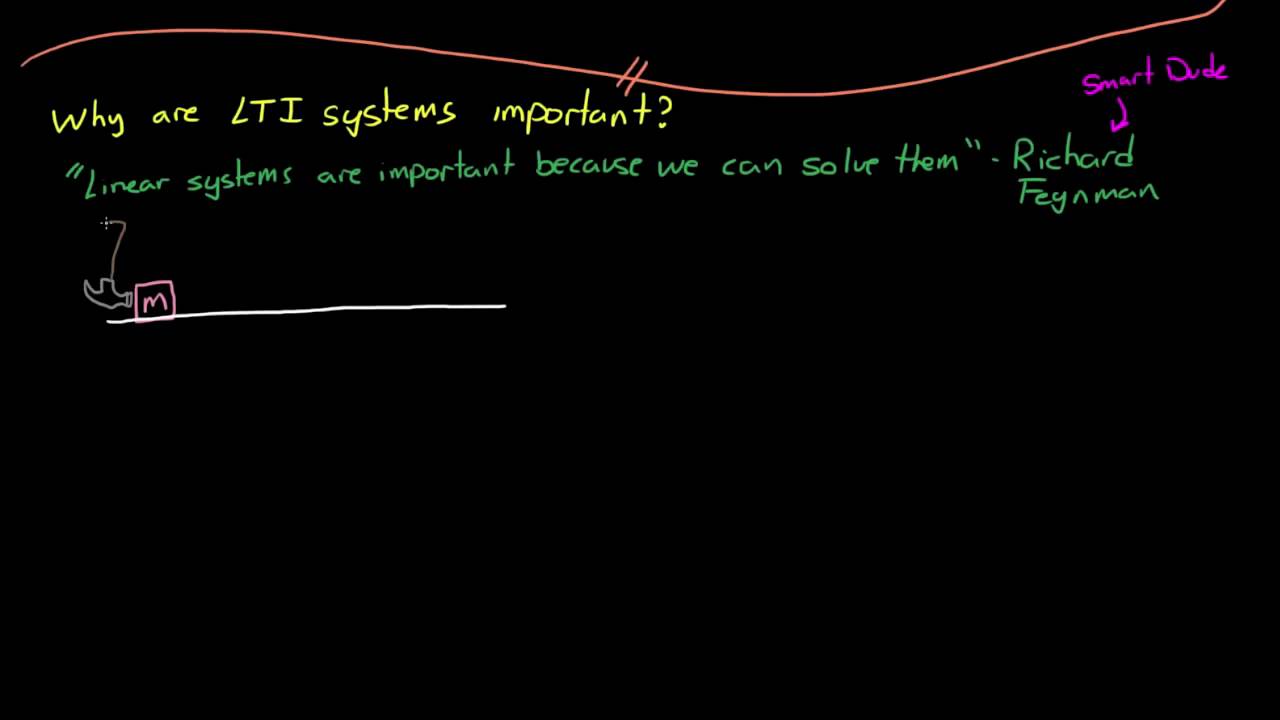 Smart Dude
Why are LTI systems important?
"Linear systems are important because we can solve them" - Richard
Feynman
m